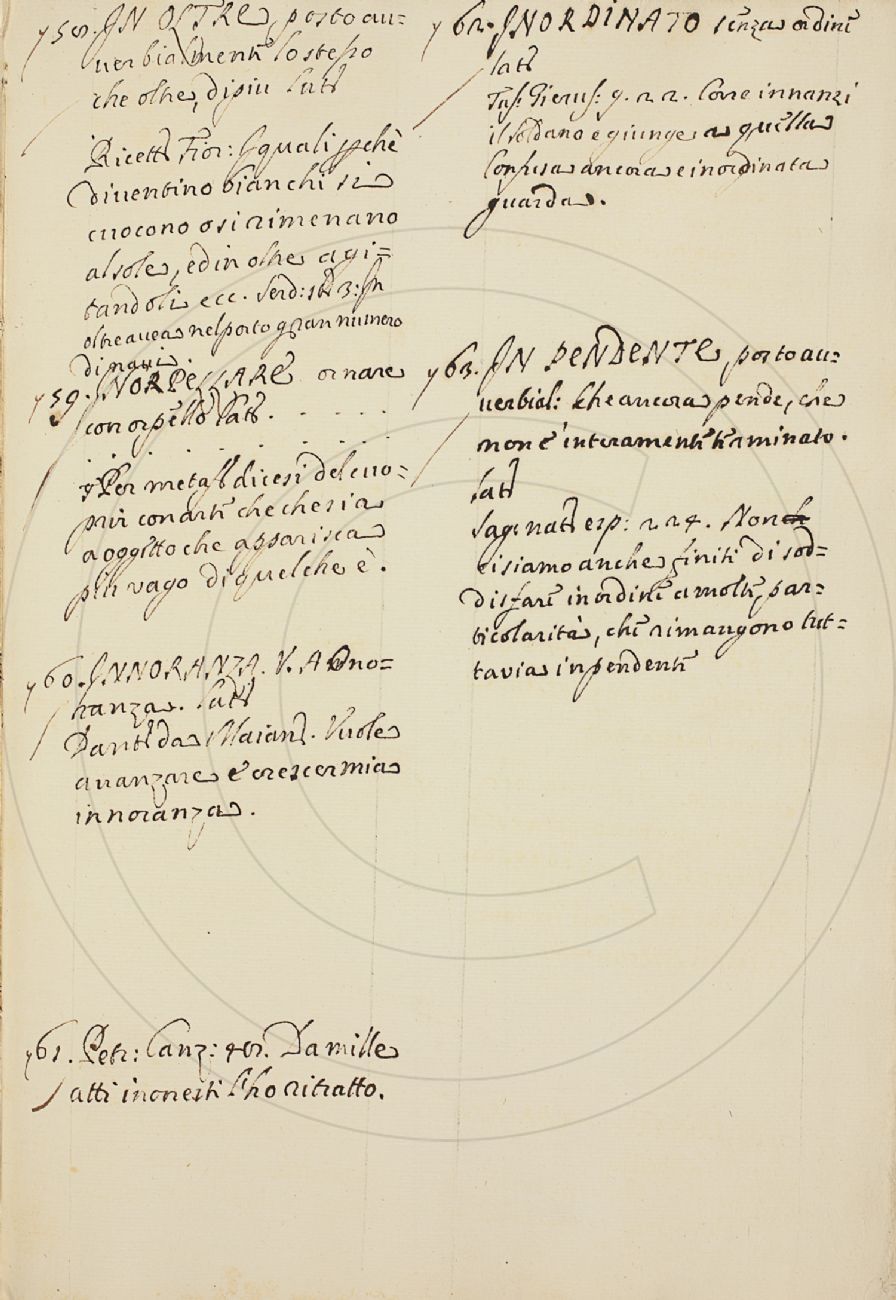 758. IN OLTRE, posto au=
uerbialmente lo stesso
che oltre, di piu Lat.
Ricett. Fior: E quali p chè
diuentino bianchi si
cuocono o si rimenano
al sole, ed in oltre agi=
tandoli ecc. Serd: st. 3: In
oltre auea nel porto gran numero
di naui.
759. INORPELLARE ornare
con orpello Lat. . . . .
. . . . . . . .
§ Per metaf. dicesi del cuo=
prir con arte che che sia
a oggetto che apparisca
più vago di quel che è.
760. INNORANZA. V. AONo=
ranza. Lat.
Dante da Maian. Vuole
auanzare e crescer mia
innoranza.
761. Petr: Canz: 48. Da mille
atti inonesti l'ho ritratto.
762. INORDINATO senza ordine
Lat.
Tass. Gierus: 9. 22. Corre innanzi
il soldano e giunge a quella
confusa ancora e inordinata
guarda.
763. IN PENDENTE, posto au=
uerbial: Che ancora pende, che
non è interamente terminato.
Lat.
Sag. nat. esp: 224. Non ch
ci siamo anche finiti di sod=
disfare in ordine a molte par=
ticolarità, che rimangono tut=
tavia in pendente